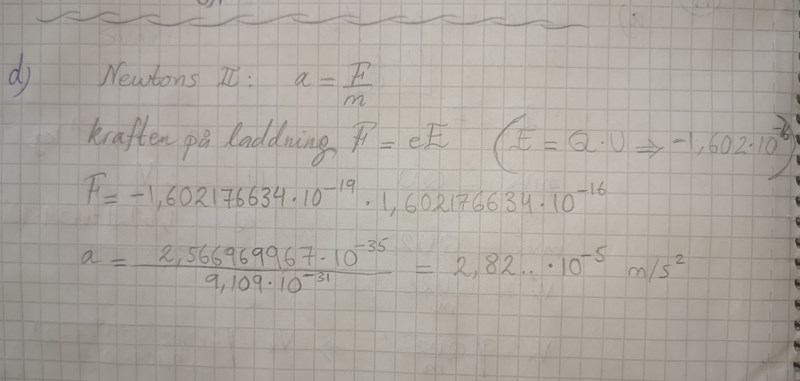 d) Newtons II: a = F/m
kraften på laddning F = eE (E = Q·U ⇒ -1,602·10^-16)
F = -1,602176634·10^-19 · 1,602176634·10^-16
a = 2,566969967·10^-35 / 9,109·10^-31 = 2,82..·10^-5 m/s^2